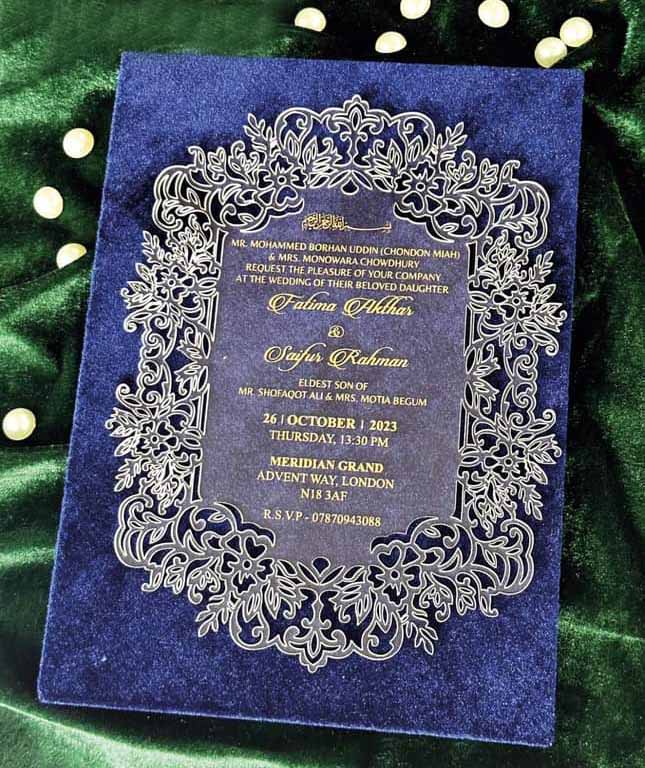 بسم الله الرحمن الرحيم
MR. MOHAMMED BORHAN UDDIN (CHONDON MIAH)
& MRS. MONOWARA CHOWDHURY
REQUEST THE PLEASURE OF YOUR COMPANY
AT THE WEDDING OF THEIR BELOVED DAUGHTER
Fatima Akthar
&
Saifur Rahman
ELDEST SON OF
MR. SHOFAQOT ALI & MRS. MOTIA BEGUM
26 | OCTOBER | 2023
THURSDAY, 13:30 PM
MERIDIAN GRAND
ADVENT WAY, LONDON
N18 3AF
R.S.V.P - 07870943088